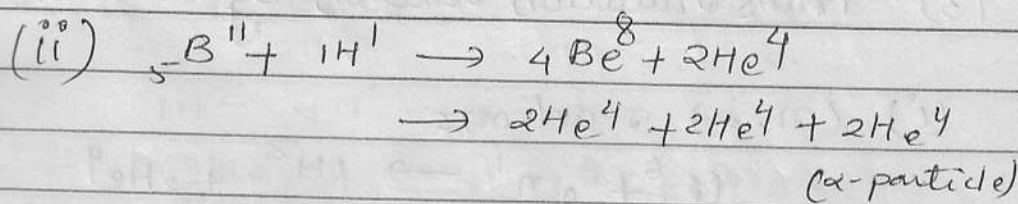 (ii) ₅B¹¹ + ₁H¹ → ₄Be⁸ + ₂He⁴
→ ₂He⁴ + ₂He⁴ + ₂He⁴
(α-particle)